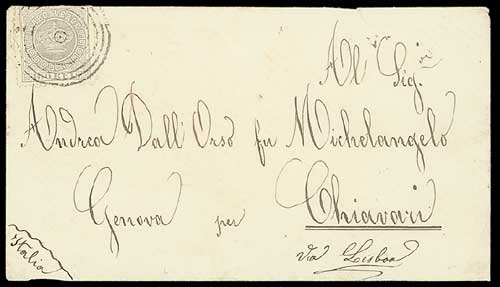 Al Sig.
Andrea Dall Orso fu Michelangelo
Genova per Chiavari
via Lisboa
Italia